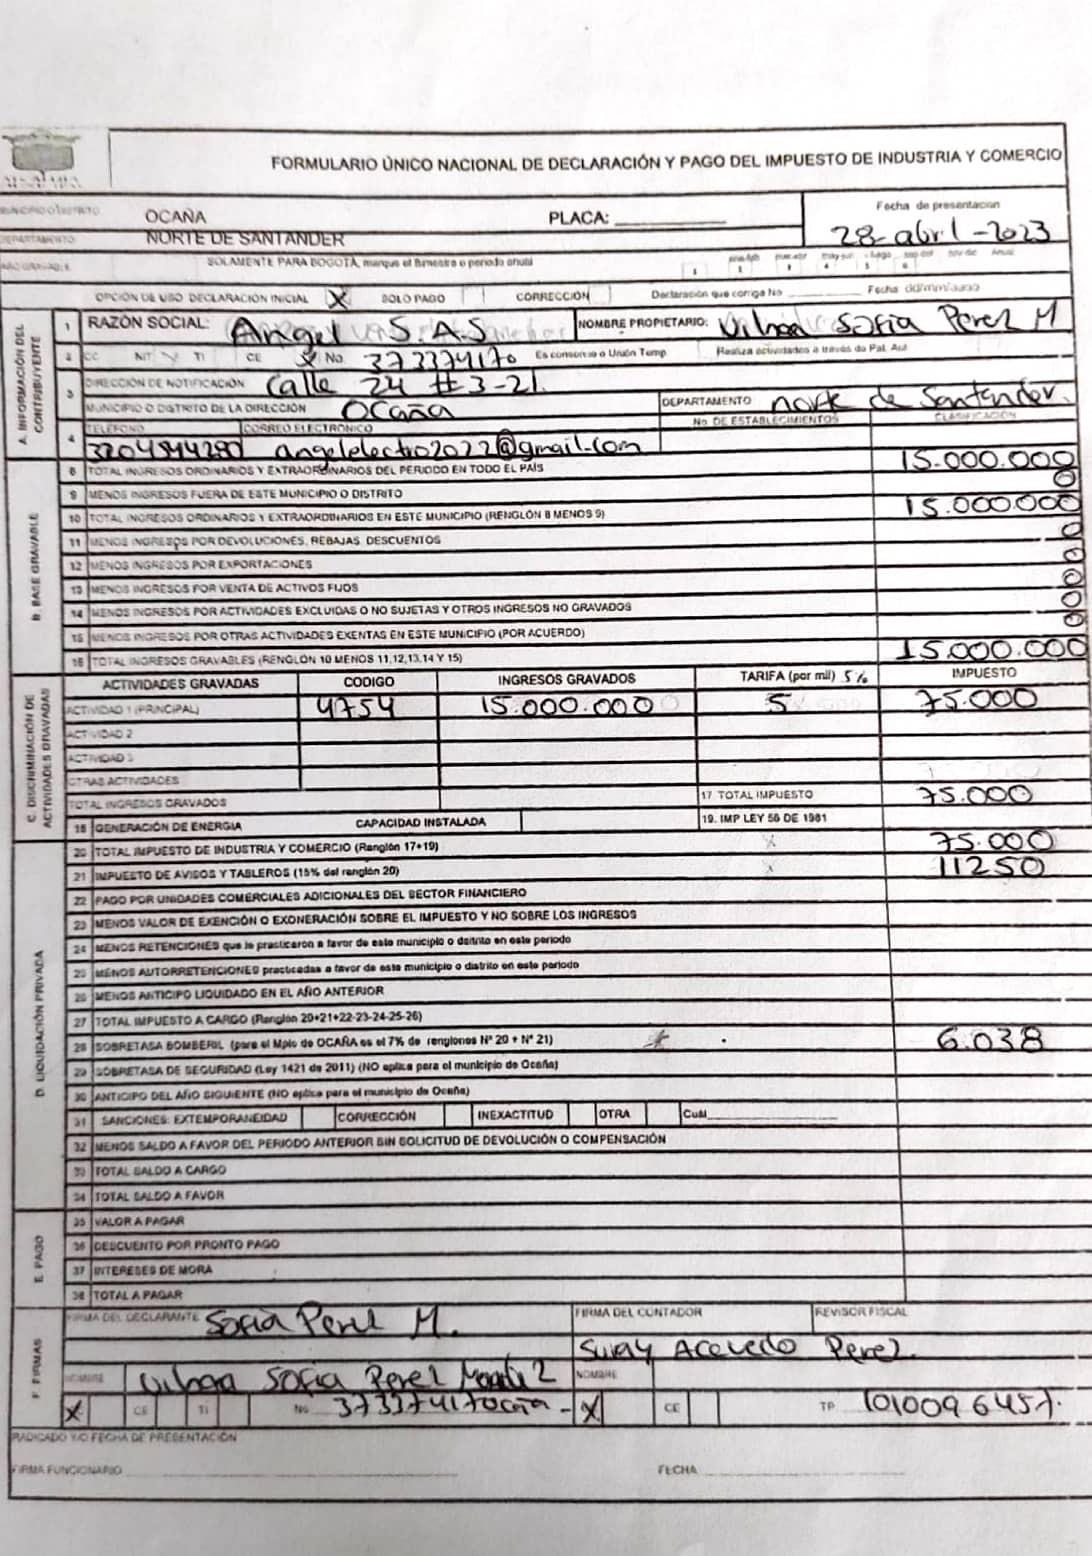 FORMULARIO ÚNICO NACIONAL DE DECLARACIÓN Y PAGO DEL IMPUESTO DE INDUSTRIA Y COMERCIO
MUNICIPIO O DISTRITO OCAÑA PLACA: Fecha de presentacion
DEPARTAMENTO NORTE DE SANTANDER 28-abril-2023
AÑO GRAVABLE SOLAMENTE PARA BOGOTÁ, marque el Bimestre o periodo anual
OPCIÓN DE USO DECLARACIÓN INICIAL X SOLO PAGO CORRECCIÓN Declaración que corrige No Fecha dd/mm/aaaa
A. INFORMACIÓN DEL CONTRIBUYENTE
1 RAZÓN SOCIAL: Angel S.A.S NOMBRE PROPIETARIO: Sofia Perez M
2 CC NIT TI CE X No. 373374170 Es consorcio o Unión Temp. Realiza actividades a través de Pat. Aut
3 DIRECCIÓN DE NOTIFICACIÓN Calle 24 #3-21.
MUNICIPIO O DISTRITO DE LA DIRECCIÓN Ocaña DEPARTAMENTO norte de Santander.
4 TELÉFONO CORREO ELECTRÓNICO No DE ESTABLECIMIENTOS CLASIFICACIÓN
angelelectro2022@gmail.com
B. BASE GRAVABLE
8 TOTAL INGRESOS ORDINARIOS Y EXTRAORDINARIOS DEL PERIODO EN TODO EL PAÍS 15.000.000
9 MENOS INGRESOS FUERA DE ESTE MUNICIPIO O DISTRITO 0
10 TOTAL INGRESOS ORDINARIOS Y EXTRAORDINARIOS EN ESTE MUNICIPIO (RENGLÓN 8 MENOS 9) 15.000.000
11 MENOS INGRESOS POR DEVOLUCIONES, REBAJAS, DESCUENTOS 0
12 MENOS INGRESOS POR EXPORTACIONES 0
13 MENOS INGRESOS POR VENTA DE ACTIVOS FIJOS 0
14 MENOS INGRESOS POR ACTIVIDADES EXCLUIDAS O NO SUJETAS Y OTROS INGRESOS NO GRAVADOS 0
15 MENOS INGRESOS POR OTRAS ACTIVIDADES EXENTAS EN ESTE MUNICIPIO (POR ACUERDO) 0
16 TOTAL INGRESOS GRAVABLES (RENGLÓN 10 MENOS 11,12,13,14 Y 15) 15.000.000
C. DISCRIMINACIÓN DE ACTIVIDADES GRAVADAS
ACTIVIDADES GRAVADAS CODIGO INGRESOS GRAVADOS TARIFA (por mil) 5% IMPUESTO
ACTIVIDAD 1 (PRINCIPAL) 4754 15.000.000 5 75.000
ACTIVIDAD 2
ACTIVIDAD 3
OTRAS ACTIVIDADES
TOTAL INGRESOS GRAVADOS 17 TOTAL IMPUESTO 75.000
18 GENERACIÓN DE ENERGIA CAPACIDAD INSTALADA 19. IMP LEY 56 DE 1981
D. LIQUIDACIÓN PRIVADA
20 TOTAL IMPUESTO DE INDUSTRIA Y COMERCIO (Renglón 17+19) x 75.000
21 IMPUESTO DE AVISOS Y TABLEROS (15% del renglón 20) x 11250
22 PAGO POR UNIDADES COMERCIALES ADICIONALES DEL SECTOR FINANCIERO
23 MENOS VALOR DE EXENCIÓN O EXONERACIÓN SOBRE EL IMPUESTO Y NO SOBRE LOS INGRESOS
24 MENOS RETENCIONES que le practicaron a favor de este municipio o distrito en este periodo
25 MENOS AUTORRETENCIONES practicadas a favor de este municipio o distrito en este periodo
26 MENOS ANTICIPO LIQUIDADO EN EL AÑO ANTERIOR
27 TOTAL IMPUESTO A CARGO (Renglón 20+21+22-23-24-25-26)
28 SOBRETASA BOMBERIL (para el Mpio de OCAÑA es el 7% de renglones Nº 20 + Nº 21) * 6.038
29 SOBRETASA DE SEGURIDAD (Ley 1421 de 2011) (NO aplica para el municipio de Ocaña)
30 ANTICIPO DEL AÑO SIGUIENTE (NO aplica para el municipio de Ocaña)
31 SANCIONES: EXTEMPORANEIDAD CORRECCIÓN INEXACTITUD OTRA Cual
32 MENOS SALDO A FAVOR DEL PERIODO ANTERIOR SIN SOLICITUD DE DEVOLUCIÓN O COMPENSACIÓN
33 TOTAL SALDO A CARGO
34 TOTAL SALDO A FAVOR
E. PAGO
35 VALOR A PAGAR
36 DESCUENTO POR PRONTO PAGO
37 INTERESES DE MORA
38 TOTAL A PAGAR
F FIRMAS
FIRMA DEL DECLARANTE Sofia Perez M. FIRMA DEL CONTADOR REVISOR FISCAL
Acevedo Perez.
NOMBRE Sofia Perez NOMBRE
X CE TI No 373374170 X CE TP
RADICADO Y/O FECHA DE PRESENTACIÓN
FIRMA FUNCIONARIO FECHA